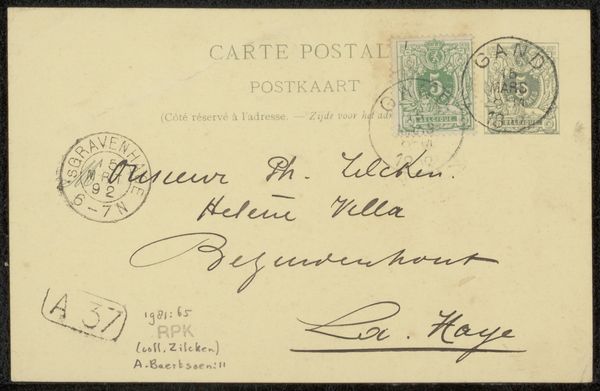 CARTE POSTAL
POSTKAART
(Côté réservé à l'adresse. — Zijde voor het adr
5
BELGIQUE
5
BELGIQUE
GAND
15
MARS
GAND
'SGRAVENHAGE
15
MRT
92
6-7N
Monsieur Ph. Zilcken.
Helène Villa
Bezuidenhout
La Haye
A 37
1981:65
RPK
(coll. Zilcken)
A. Baertsoen:11